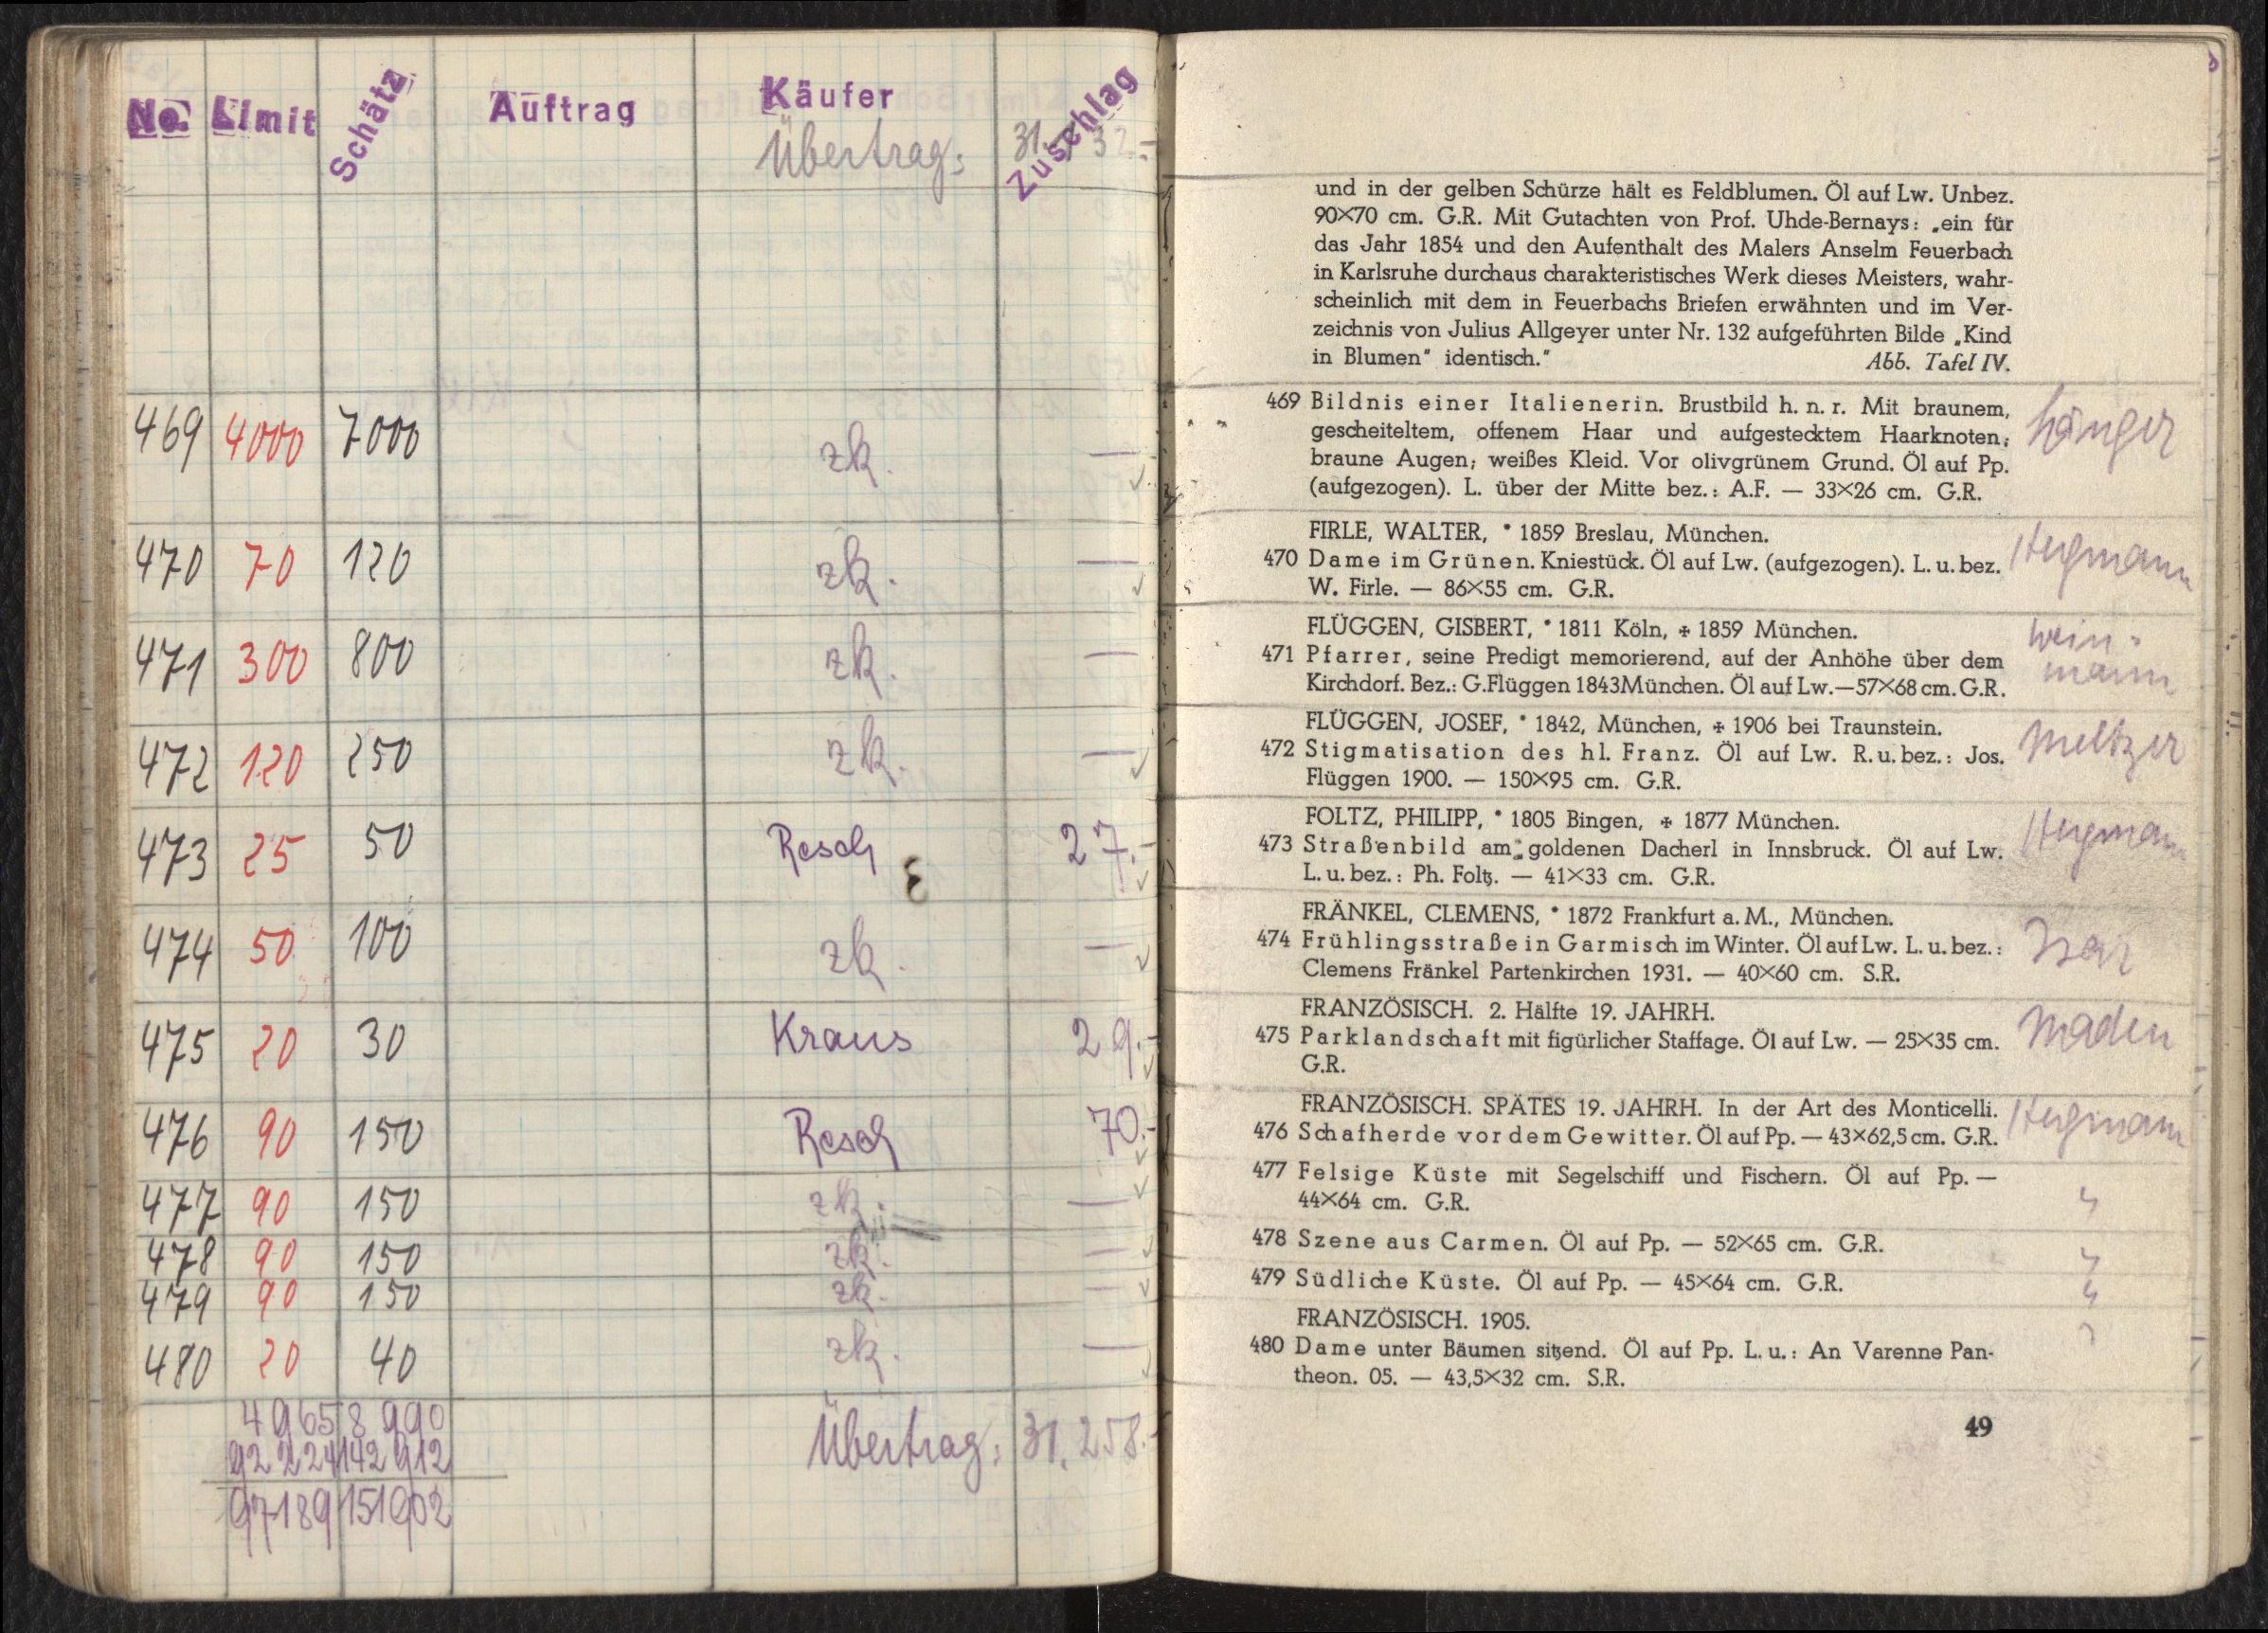 No. Limit Schätz. Auftrag Käufer Zuschlag
Übertrag:
469 4000 7000 zk. —
470 70 120 zk. —
471 300 800 zk. —
472 120 250 zk. —
473 25 50 Resch 27.-
474 50 100 zk. —
475 20 30 Kraus 29.-
476 90 150 Resch 70.-
477 90 150 zk. —
478 90 150 zk. —
479 90 150 zk. —
480 20 40 zk. —
4965 8990 Übertrag: 31.258.-
92224 142912
97189 151902
und in der gelben Schürze hält es Feldblumen. Öl auf Lw. Unbez.
90×70 cm. G.R. Mit Gutachten von Prof. Uhde-Bernays: „ein für
das Jahr 1854 und den Aufenthalt des Malers Anselm Feuerbach
in Karlsruhe durchaus charakteristisches Werk dieses Meisters, wahr-
scheinlich mit dem in Feuerbachs Briefen erwähnten und im Ver-
zeichnis von Julius Allgeyer unter Nr. 132 aufgeführten Bilde „Kind
in Blumen" identisch." Abb. Tafel IV.
469 Bildnis einer Italienerin. Brustbild h. n. r. Mit braunem,
gescheiteltem, offenem Haar und aufgestecktem Haarknoten;
braune Augen; weißes Kleid. Vor olivgrünem Grund. Öl auf Pp.
(aufgezogen). L. über der Mitte bez.: A.F. — 33×26 cm. G.R.
FIRLE, WALTER, * 1859 Breslau, München.
470 Dame im Grünen. Kniestück. Öl auf Lw. (aufgezogen). L. u. bez.
W. Firle. — 86×55 cm. G.R.
FLÜGGEN, GISBERT, * 1811 Köln, ✠ 1859 München.
471 Pfarrer, seine Predigt memorierend, auf der Anhöhe über dem
Kirchdorf. Bez.: G.Flüggen 1843München. Öl auf Lw.—57×68 cm. G.R.
wein-
mann
FLÜGGEN, JOSEF, * 1842, München, ✠ 1906 bei Traunstein.
472 Stigmatisation des hl. Franz. Öl auf Lw. R. u. bez.: Jos.
Flüggen 1900. — 150×95 cm. G.R.
Meltzer
FOLTZ, PHILIPP, * 1805 Bingen, ✠ 1877 München.
473 Straßenbild am goldenen Dacherl in Innsbruck. Öl auf Lw.
L. u. bez.: Ph. Foltz. — 41×33 cm. G.R.
FRÄNKEL, CLEMENS, * 1872 Frankfurt a. M., München.
474 Frühlingsstraße in Garmisch im Winter. Öl auf Lw. L. u. bez.:
Clemens Fränkel Partenkirchen 1931. — 40×60 cm. S.R.
Isar
FRANZÖSISCH. 2. Hälfte 19. JAHRH.
475 Parklandschaft mit figürlicher Staffage. Öl auf Lw. — 25×35 cm.
G.R.
Maden
FRANZÖSISCH. SPÄTES 19. JAHRH. In der Art des Monticelli.
476 Schafherde vor dem Gewitter. Öl auf Pp. — 43×62,5 cm. G.R.
477 Felsige Küste mit Segelschiff und Fischern. Öl auf Pp. —
44×64 cm. G.R.
478 Szene aus Carmen. Öl auf Pp. — 52×65 cm. G.R.
479 Südliche Küste. Öl auf Pp. — 45×64 cm. G.R.
FRANZÖSISCH. 1905.
480 Dame unter Bäumen sitzend. Öl auf Pp. L. u.: An Varenne Pan-
theon. 05. — 43,5×32 cm. S.R.
49